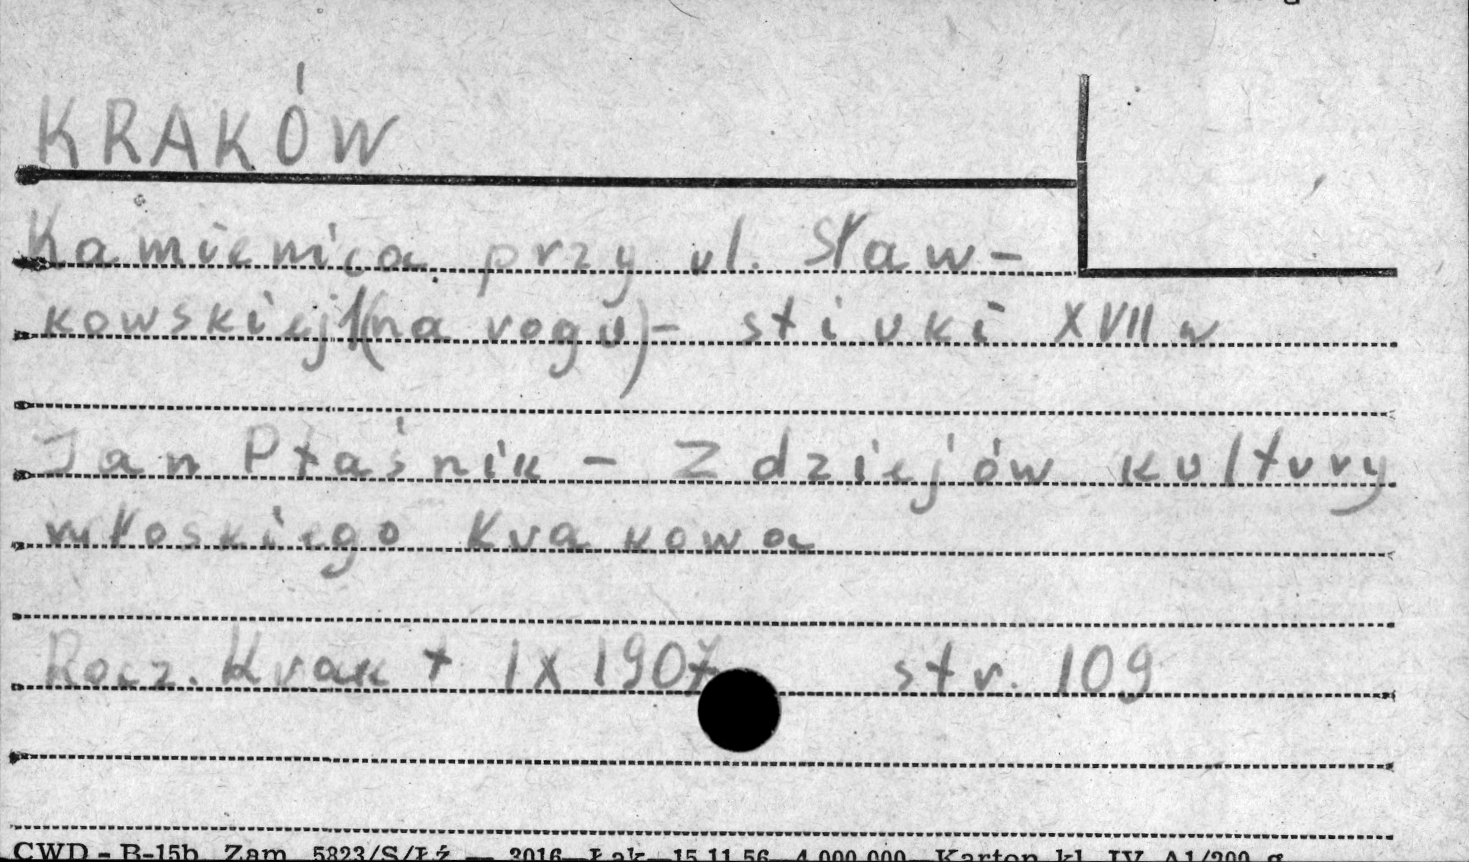 KRAKÓW
Kamienica przy ul. Sław-
kowskiej 1(na rogu)- stiuki XVII w
Jan Ptaśnik - Z dziejów kultury
włoskiego Krakowa
Rocz. Krak t IX 1907 str. 109
CWD - B-15b Zam. 5823/S/Łź — 3016—Łak—15.11.56—4.000.000— Karton kl. IV A1/200 g